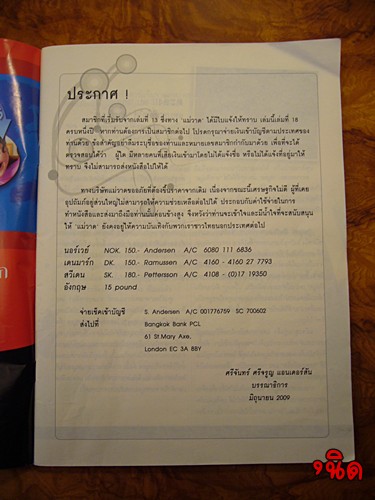 ประกาศ !
สมาชิกที่เริ่มรับจากเล่มที่ 13 ซึ่งทาง "แม่วาด" ได้มีใบแจ้งให้ทราบ เล่มนี้เล่มที่ 18
ครบหนึ่งปี หากท่านต้องการเป็นสมาชิกต่อไป โปรดกรุณาจ่ายเงินเข้าบัญชีตามประเทศของ
ท่านด้วย ข้อสำคัญอย่าลืมระบุชื่อของท่านและหมายเลขสมาชิกกำกับมาด้วย เพื่อที่จะได้
ตรวจสอบได้ว่า ผู้ใด มีหลายคนที่เสียเงินเข้ามาโดยไม่ได้แจ้งชื่อ หรือไม่ได้แจ้งที่อยู่มาให้
ทราบ จึงไม่สามารถส่งหนังสือไปให้ได้
ทางบริษัทแม่วาดขออภัยที่ต้องขึ้นราคาจากเดิม เนื่องจากขณะนี้เศรษฐกิจไม่ดี ผู้ที่เคย
อุปถัมภ์อยู่ส่วนใหญ่ไม่สามารถให้ความช่วยเหลือต่อไปได้ ประกอบกับค่าใช้จ่ายในการ
ทำหนังสือและส่งมาถึงมือท่านนั้นค่อนข้างสูง จึงหวังว่าท่านจะเข้าใจและมีน้ำใจที่จะสนับสนุน
ให้ "แม่วาด" ยังคงอยู่ให้ความบันเทิงกับพวกเราชาวไทยนอกประเทศต่อไป
นอร์เวย์ NOK. 150.- Andersen A/C 6080 111 6836
เดนมาร์ก DK. 150.- Ramussen A/C 4160 - 4160 27 7793
สวีเดน SK. 180.- Pettersson A/C 4108 - (0)17 19350
อังกฤษ 15 pound.
จ่ายเช็คเข้าบัญชี S. Andersen A/C 001776759 SC 700602
ส่งไปที่ Bangkok Bank PCL
61 St.Mary Axe,
London EC 3A 8BY
ศรีจันทร์ ศรีจรูญ แอนเดอร์สัน
บรรณาธิการ
มิถุนายน 2009
นิด